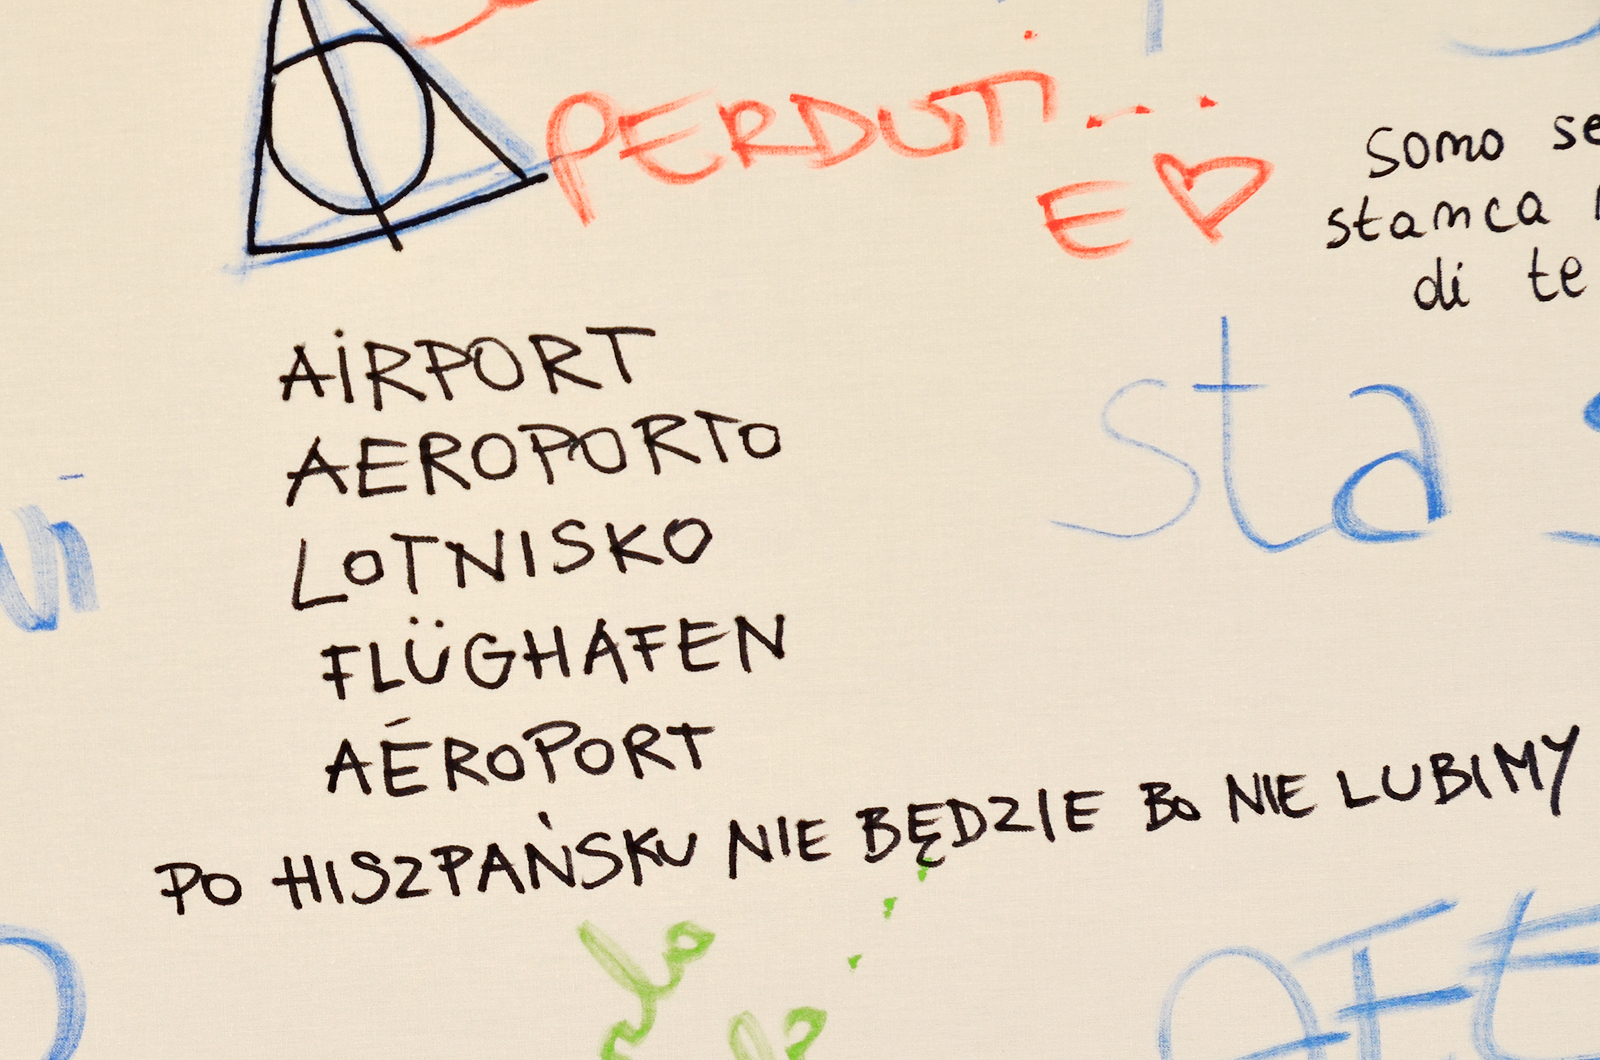 PERDUTI...
E
somo
stamca
di te
AiRPORT
AEROPORTO
LOTNISKO
FLÜGHAFEN
AÉROPORT
PO HISZPAŃSKU NIE BĘDZIE BO NIE LUBIMY
sta